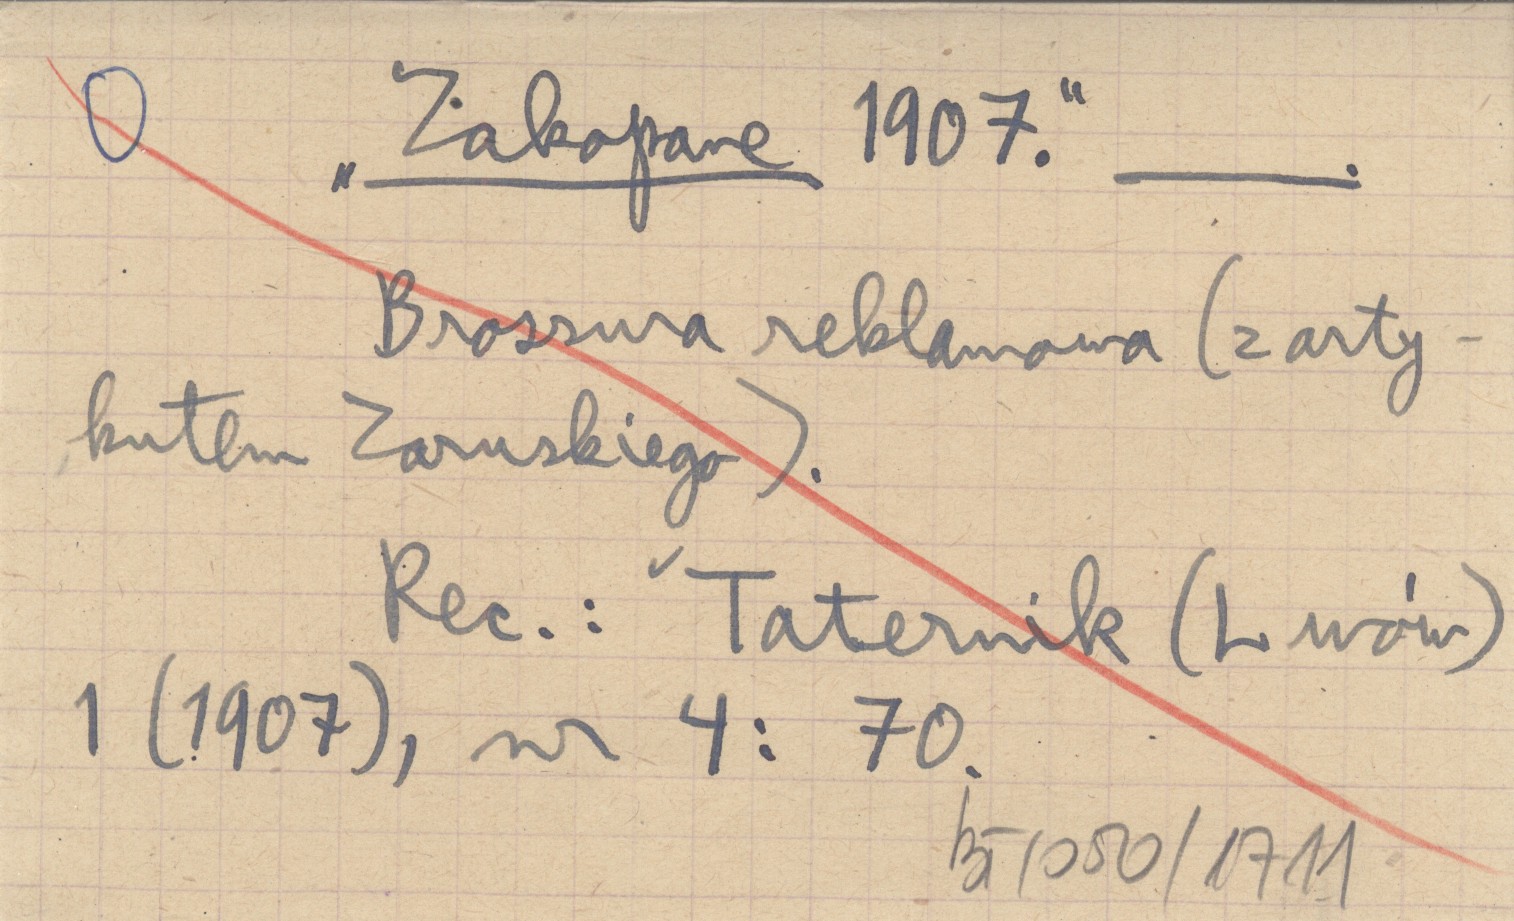 „Zakopane 1907.“ ———.
Broszura reklamowa (z arty-
kułem Zaruskiego).
Rec.: Taternik (Lwów)
1 (1907), nr 4: 70.